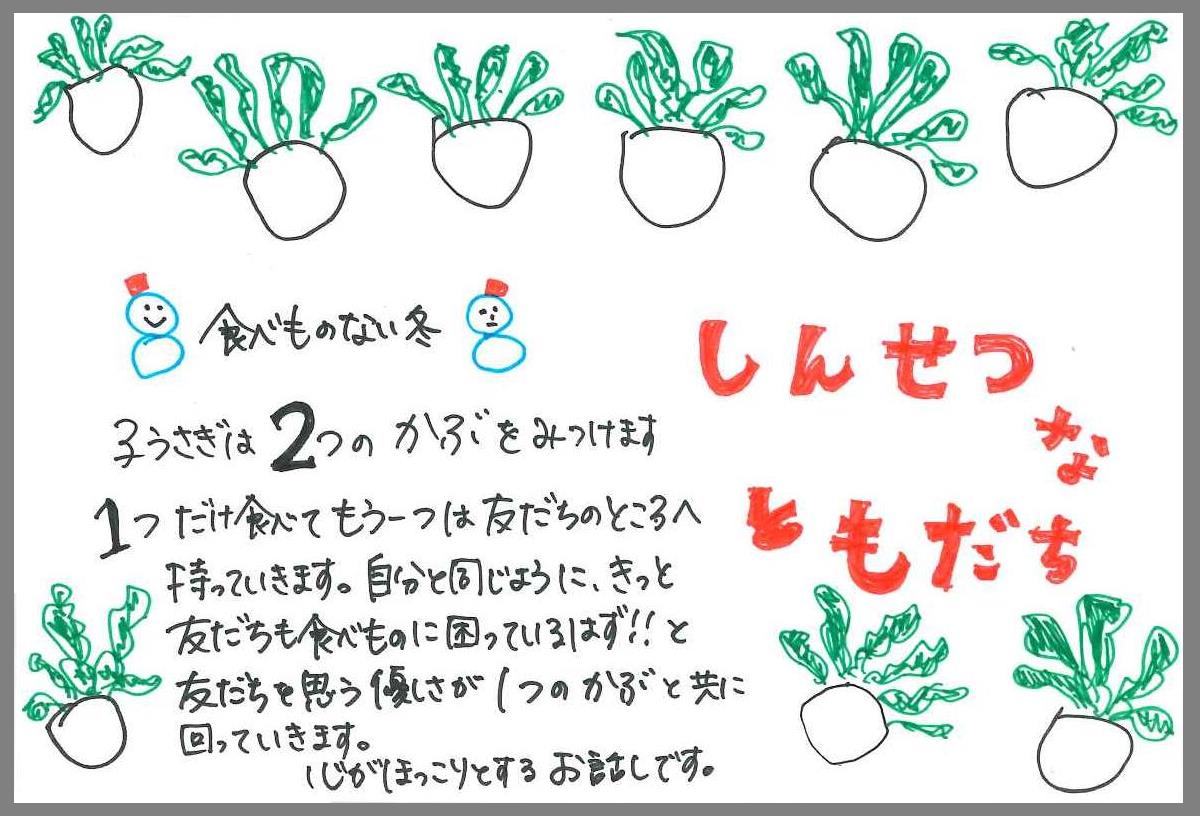 食べものない冬
しんせつ
な
ともだち
子うさぎは2つのかぶをみつけます
1つだけ食べてもう一つは友だちのところへ
持っていきます。自分と同じように、きっと
友だちも食べものに困っているはず!!と
友だちを思う優しさが1つのかぶと共に
回っていきます。
心がほっこりとするお話しです。